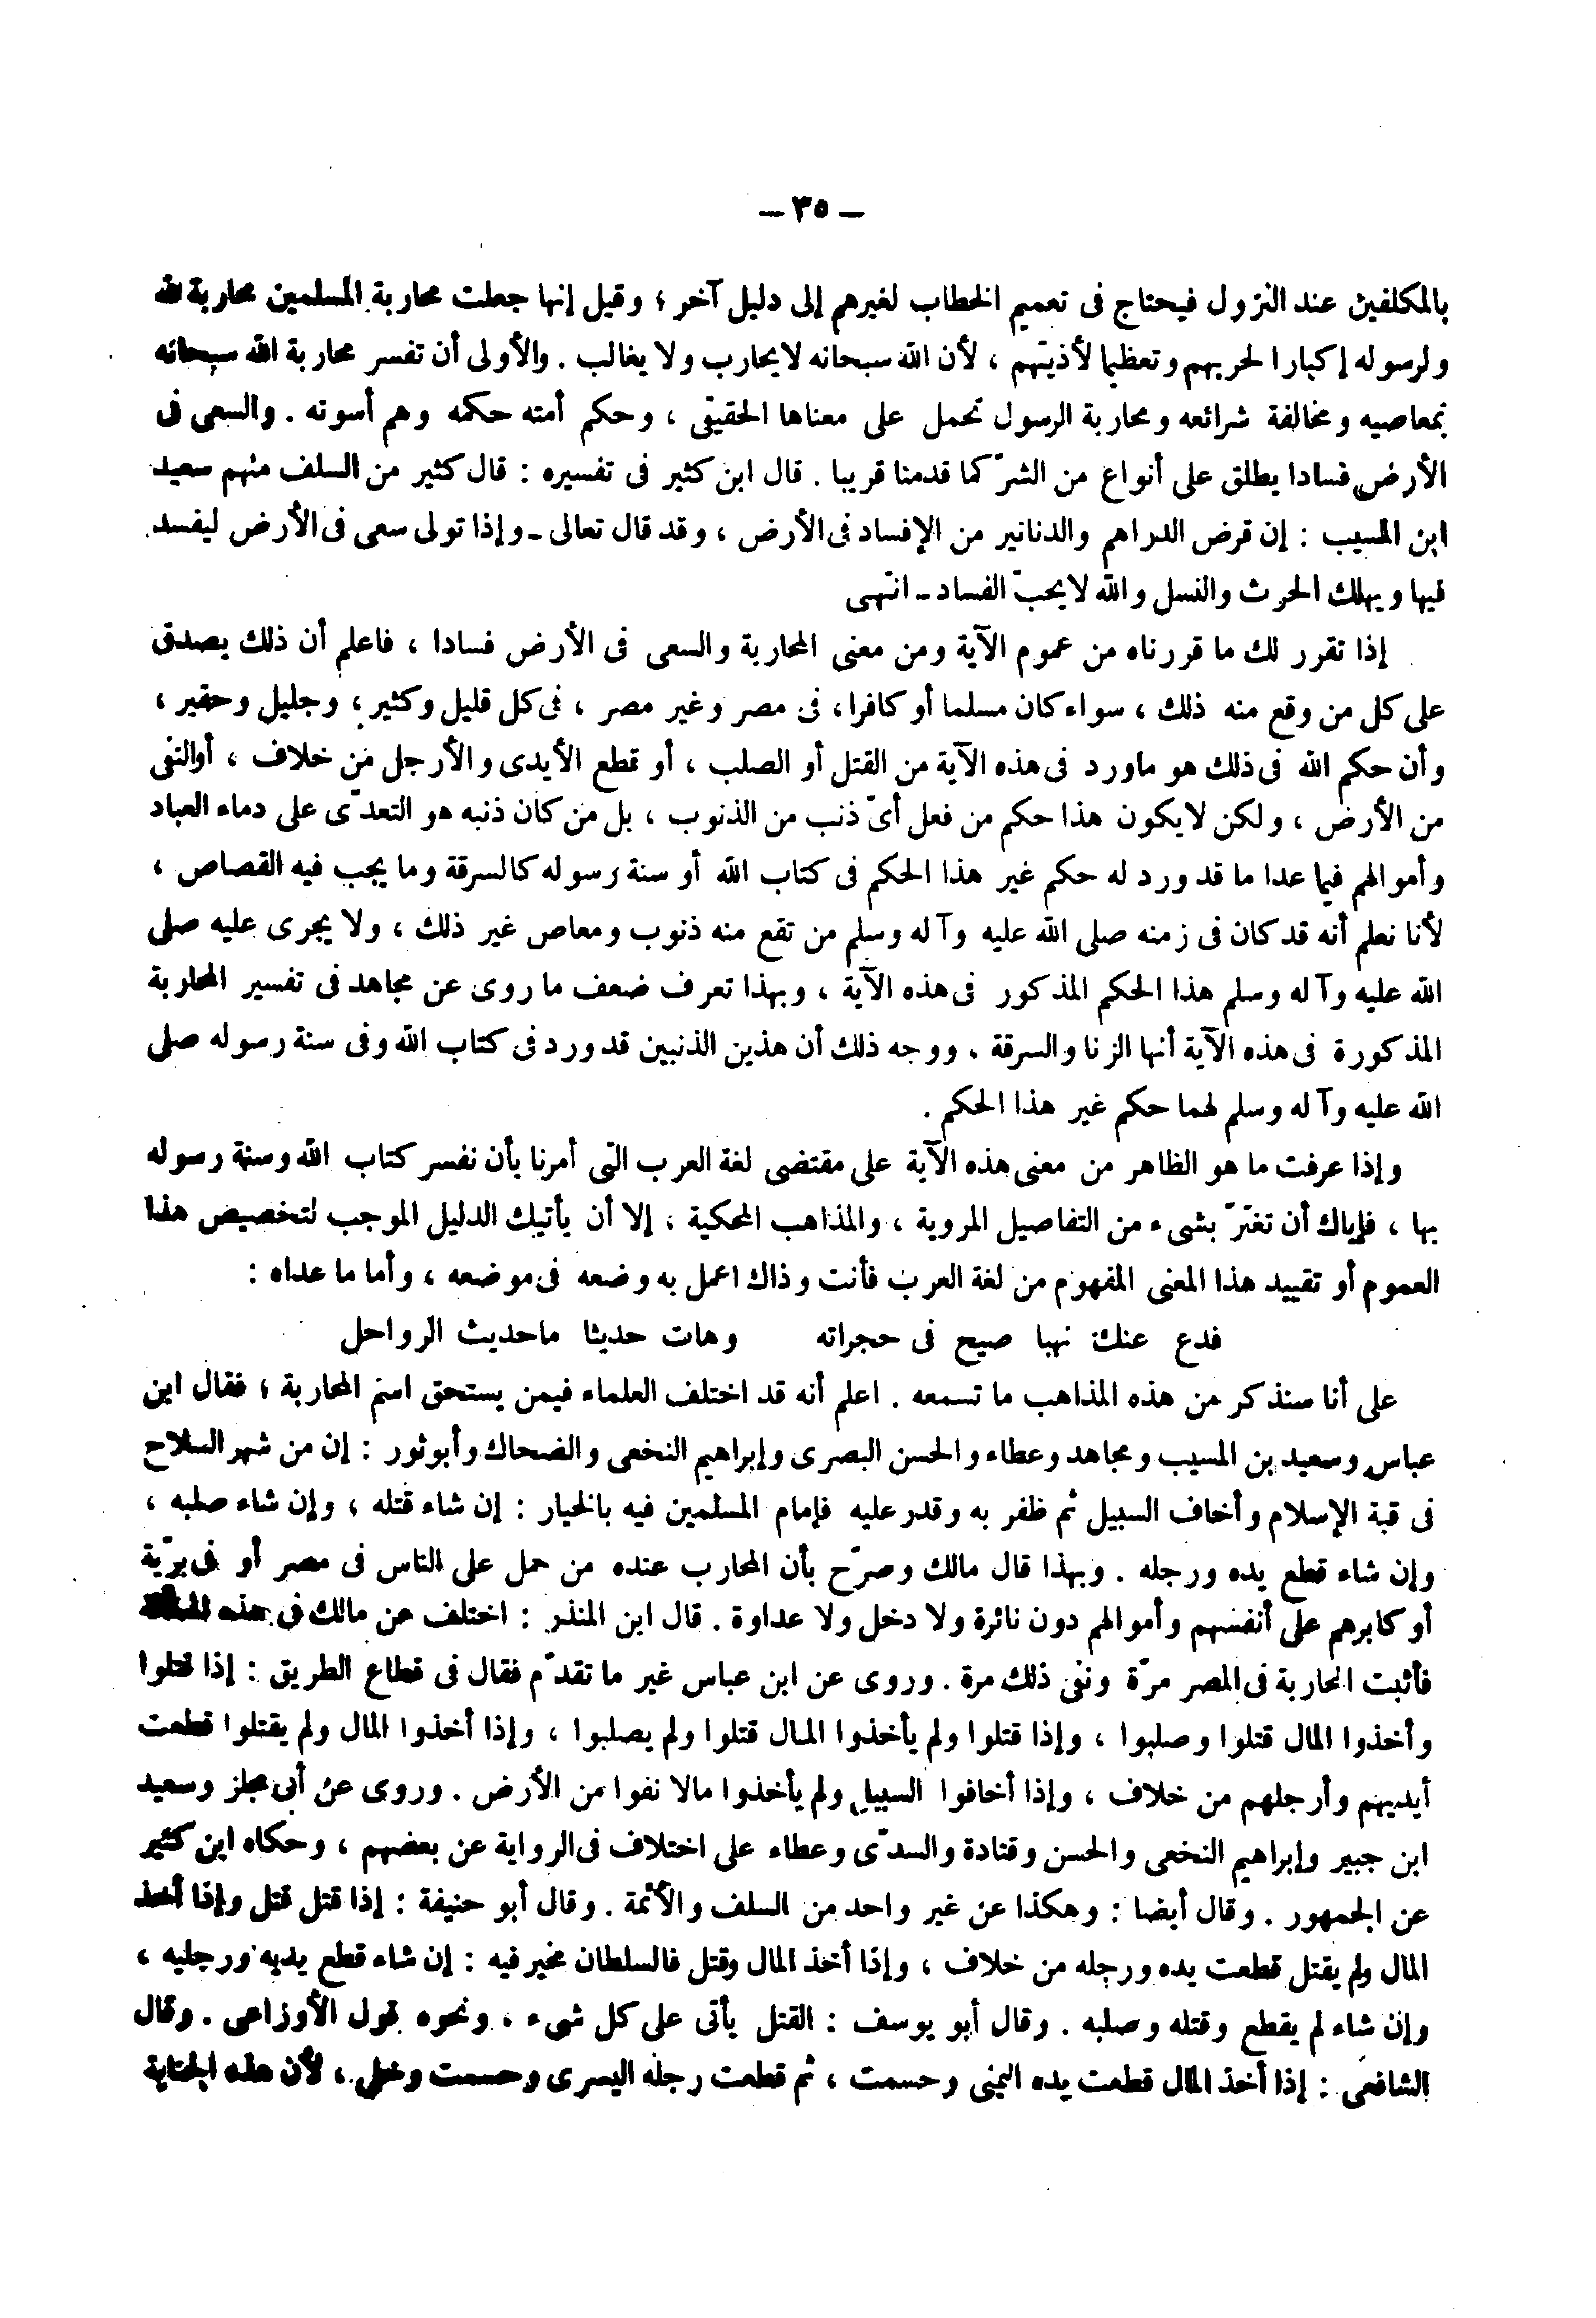 — ٣٥ —
بالمكلفين عند النزول فيحتاج فى تعميم الخطاب لغيرهم إلى دليل آخر ؛ وقيل إنها جعلت محاربة المسلمين محاربة لله
ولرسوله إكبارا لحربهم وتعظيما لأذيتهم ، لأن الله سبحانه لا يحارب ولا يغالب . والأولى أن تفسر محاربة الله سبحانه
بمعاصيه ومخالفة شرائعه ومحاربة الرسول تحمل على معناها الحقيقى ، وحكم أمته حكمه وهم أسوته . والسعى فى
الأرض فسادا يطلق على أنواع من الشرّ كما قدمنا قريبا . قال ابن كثير فى تفسيره : قال كثير من السلف منهم سعيد
ابن المسيب : إن قرض الدراهم والدنانير من الإفساد فى الأرض ، وقد قال تعالى ـ وإذا تولى سعى فى الأرض ليفسد
فيها ويهلك الحرث والنسل والله لا يحبّ الفساد ـ انتهى
إذا تقرر لك ما قررناه من عموم الآية ومن معنى المحاربة والسعى فى الأرض فسادا ، فاعلم أن ذلك يصدق
على كل من وقع منه ذلك ، سواء كان مسلما أو كافرا ، فى مصر وغير مصر ، فى كل قليل وكثير ، وجليل وحقير ،
وأن حكم الله فى ذلك هو ما ورد فى هذه الآية من القتل أو الصلب ، أو قطع الأيدى والأرجل من خلاف ، أو النفى
من الأرض ، ولكن لا يكون هذا حكم من فعل أىّ ذنب من الذنوب ، بل من كان ذنبه هو التعدّى على دماء العباد
وأموالهم فيما عدا ما قد ورد له حكم غير هذا الحكم فى كتاب الله أو سنة رسوله كالسرقة وما يجب فيه القصاص ،
لأنا نعلم أنه قد كان فى زمنه صلى الله عليه وآله وسلم من تقع منه ذنوب ومعاص غير ذلك ، ولا يجرى عليه صلى
الله عليه وآله وسلم هذا الحكم المذكور فى هذه الآية ، وبهذا تعرف ضعف ما روى عن مجاهد فى تفسير المحاربة
المذكورة فى هذه الآية أنها الزنا والسرقة . ووجه ذلك أن هذين الذنبين قد ورد فى كتاب الله وفى سنة رسوله صلى
الله عليه وآله وسلم لهما حكم غير هذا الحكم .
وإذا عرفت ما هو الظاهر من معنى هذه الآية على مقتضى لغة العرب التى أمرنا بأن نفسر كتاب الله وسنة رسوله
بها ، فإياك أن تغترّ بشىء من التفاصيل المروية ، والمذاهب المحكية ، إلا أن يأتيك الدليل الموجب لتخصيص هذا
العموم أو تقييد هذا المعنى المفهوم من لغة العرب فأنت وذاك اعمل به وضعه فى موضعه ، وأما ما عداه :
فدع عنك نهبا صيح فى حجراته وهات حديثا ما حديث الرواحل
على أنا سنذكر من هذه المذاهب ما تسمعه . اعلم أنه قد اختلف العلماء فيمن يستحق اسم المحاربة ؛ فقال ابن
عباس وسعيد بن المسيب ومجاهد وعطاء والحسن البصرى وإبراهيم النخعى والضحاك وأبو ثور : إن من شهر السلاح
فى قبة الإسلام وأخاف السبيل ثم ظفر به وقدر عليه فإمام المسلمين فيه بالخيار : إن شاء قتله ، وإن شاء صلبه ،
وإن شاء قطع يده ورجله . وبهذا قال مالك وصرّح بأن المحارب عنده من حمل على الناس فى مصر أو فى برّية
أو كابرهم على أنفسهم وأموالهم دون نائرة ولا دخل ولا عداوة . قال ابن المنذر : اختلف عن مالك فى هذه
فأثبت المحاربة فى المصر مرّة ونفى ذلك مرة . وروى عن ابن عباس غير ما تقدّم فقال فى قطاع الطريق : إذا قتلوا
وأخذوا المال قتلوا وصلبوا ، وإذا قتلوا ولم يأخذوا المال قتلوا ولم يصلبوا ، وإذا أخذوا المال ولم يقتلوا قطعت
أيديهم وأرجلهم من خلاف ، وإذا أخافوا السبيل ولم يأخذوا مالا نفوا من الأرض . وروى عن أبى مجلز وسعيد
ابن جبير وإبراهيم النخعى والحسن وقتادة والسدّى وعطاء على اختلاف فى الرواية عن بعضهم ، وحكاه ابن كثير
عن الجمهور . وقال أيضا : وهكذا عن غير واحد من السلف والأئمة . وقال أبو حنيفة : إذا قتل قتل وإذا أخذ
المال ولم يقتل قطعت يده ورجله من خلاف ، وإذا أخذ المال وقتل فالسلطان مخير فيه : إن شاء قطع يديه ورجليه ،
وإن شاء لم يقطع وقتله وصلبه . وقال أبو يوسف : القتل يأتى على كل شىء ، ونحوه قول الأوزاعى . وقال
الشافعى : إذا أخذ المال قطعت يده اليمنى وحسمت ، ثم قطعت رجله اليسرى وحسمت وخلى ، لأن هذه الجناية